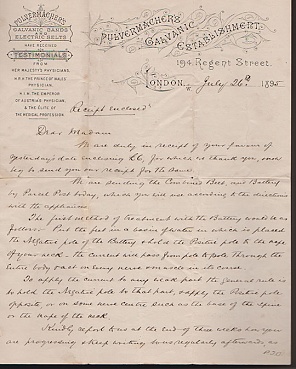 PULVERMACHER'S
GALVANIC BANDS
ELECTRIC BELTS
HAVE RECEIVED
TESTIMONIALS
FROM
HER MAJESTY'S PHYSICIANS,
H.R.H THE PRINCE OF WALES
PHYSICIAN,
H.I.M. THE EMPEROR
OF AUSTRIA'S PHYSICIAN
& THE ELITE OF
THE MEDICAL PROFESSION
PULVERMACHER'S
GALVANIC
ESTABLISHMENT
194 Regent Street.
LONDON. W. July 26th 1895
Receipt enclosed
Dear Madam
We are duly in receipt of your favour of
yesterday's date enclosing £6, for which we thank you, and
beg to send you our receipt for the same.
We are sending the Combined Belt and Battery
by Parcel Post today, which you will use according to the directions
with the appliance.
The first method of treatment with the Battery would be as
follows. Put the feet in a basin of water in which is placed
the Negative pole of the Battery & hold the Positive pole to the nape
of your neck - the current will pass from pole to pole through the
entire body & act on every nerve & muscle in its course.
To apply the current to any weak part the general rule is
to hold the Negative pole to that part, & apply the Positive pole
opposite, or on some nerve centre such as the base of the spine
or the nape of the neck.
Kindly report to us at the end of three weeks how you
are progressing & keep writing to us regularly afterwards, as